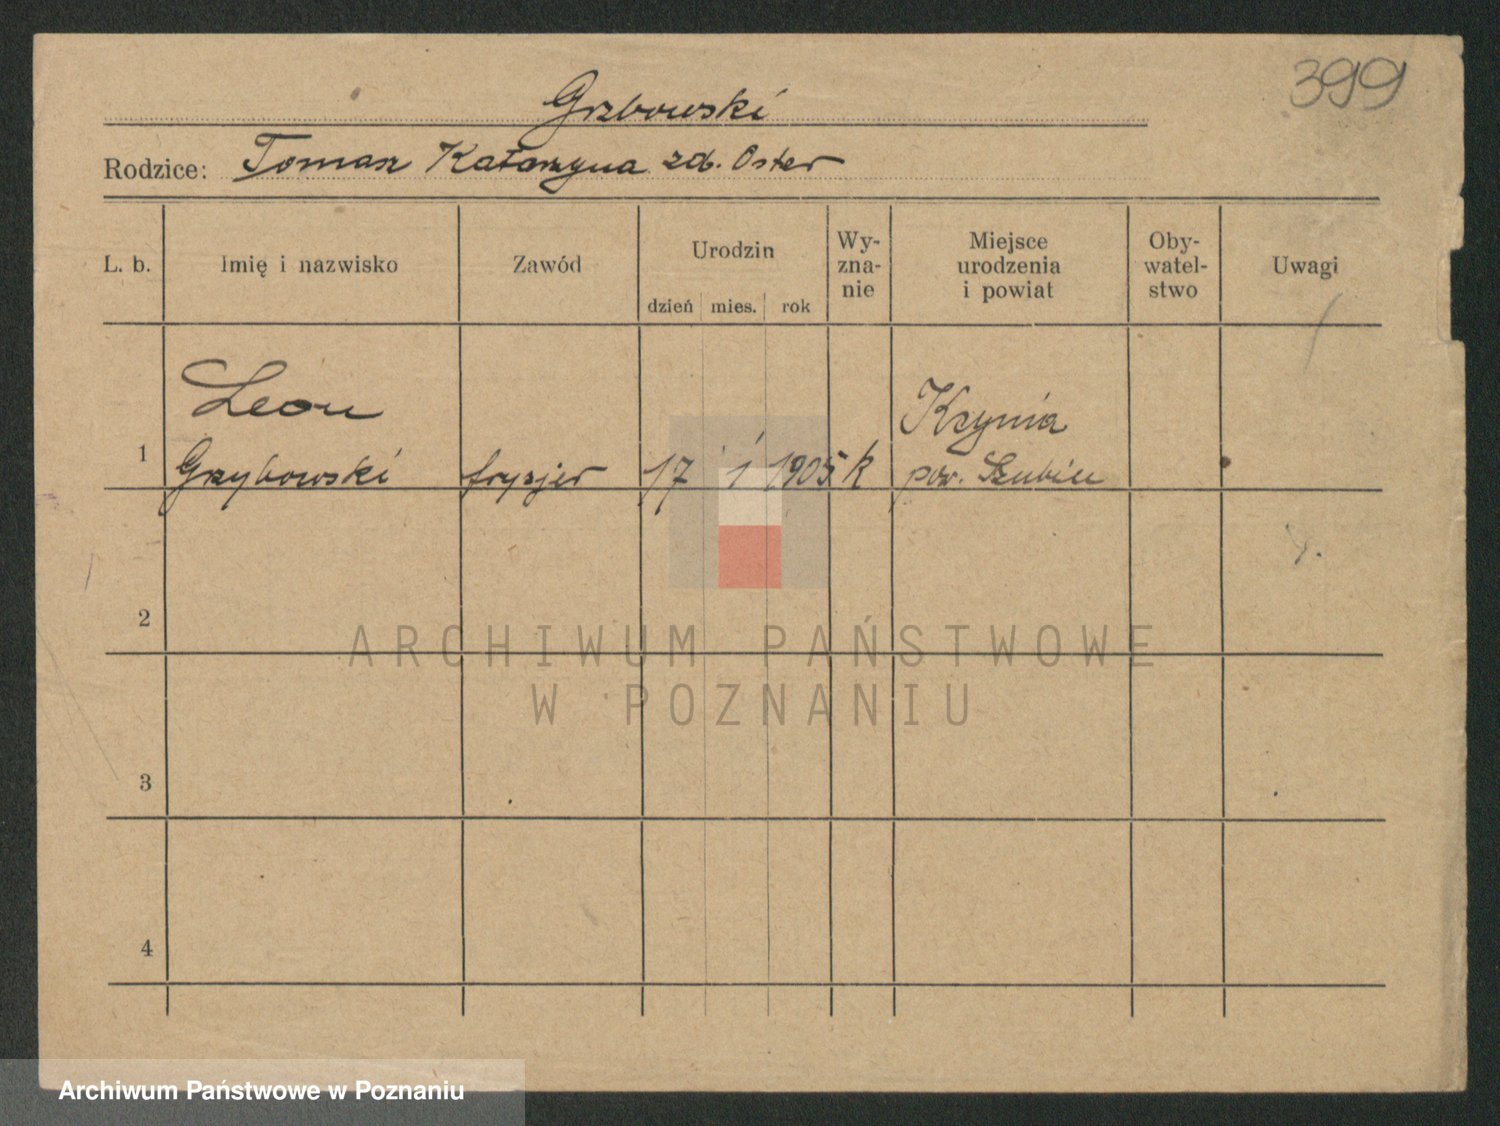 399
Grzbowski
Rodzice: Tomasz Katarzyna zd. Oster
L. b. Imię i nazwisko Zawód Urodzin dzień mies. rok Wy-zna-nie Miejsce urodzenia i powiat Oby-watel-stwo Uwagi
Leon Kcynia
1 Grzybowski fryzjer 17 1 1905 k pow. Szubin
2
3
4
ARCHIWUM PAŃSTWOWE
W POZNANIU
Archiwum Państwowe w Poznaniu